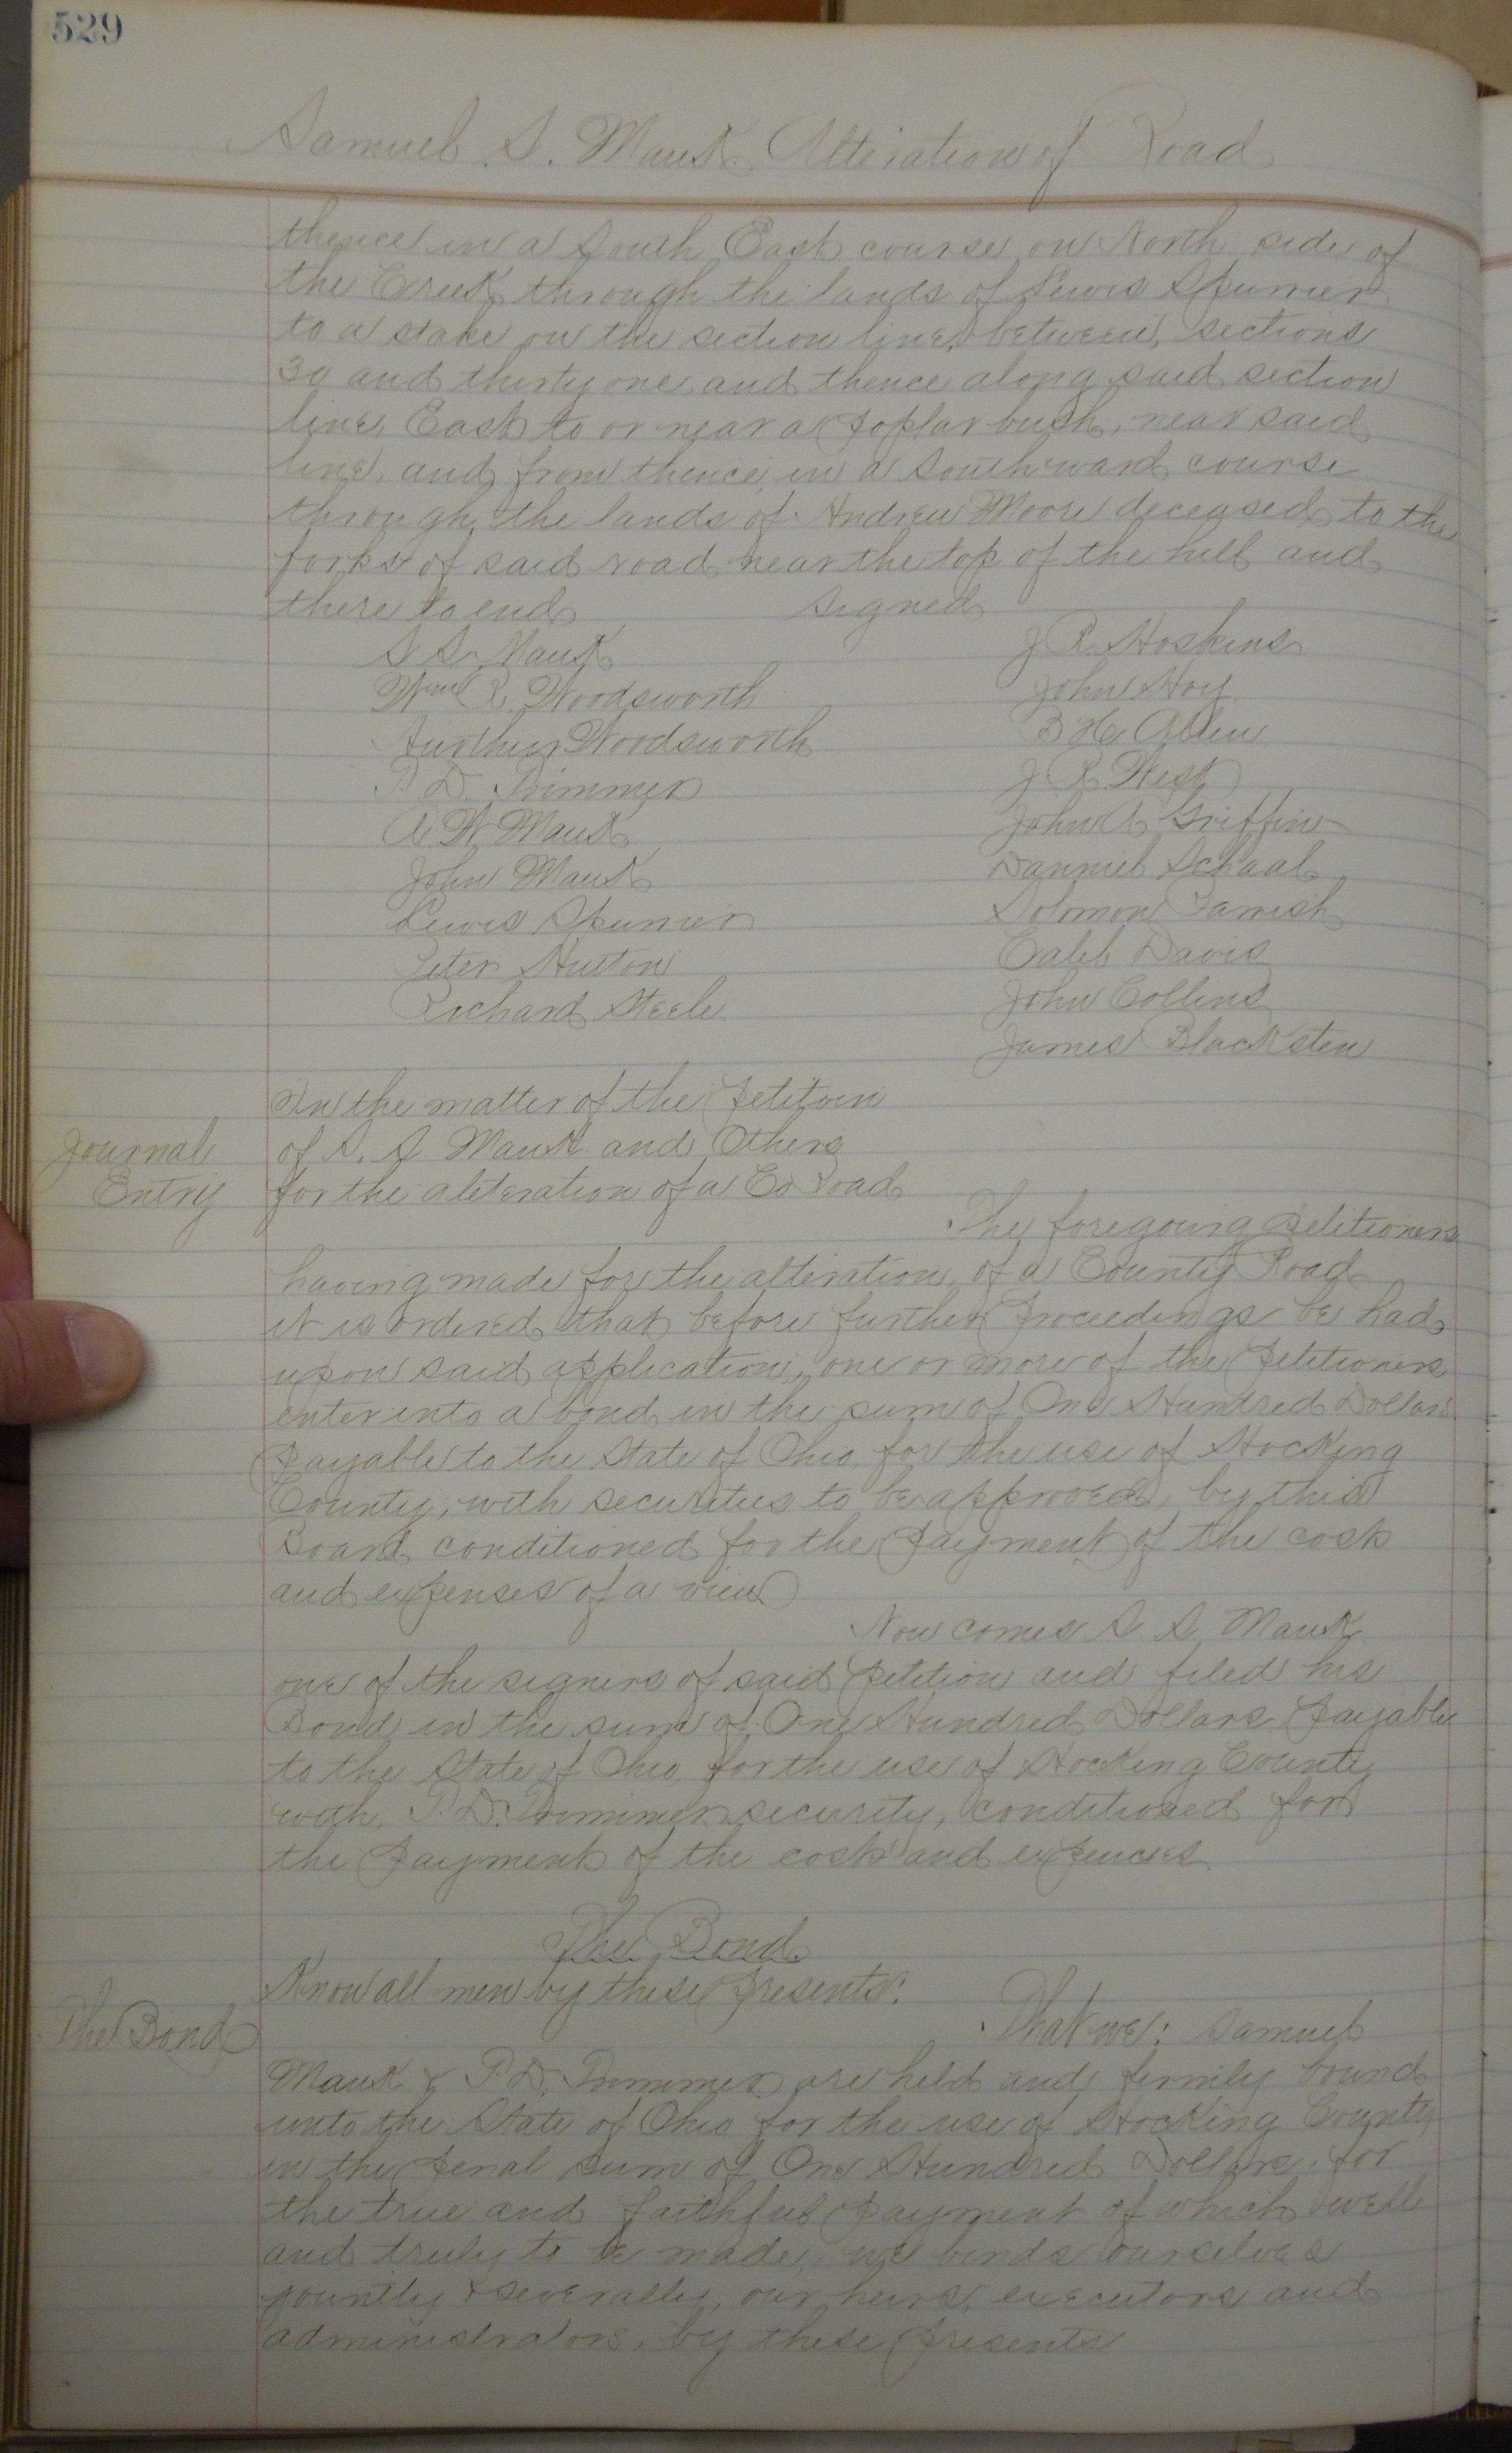 529
Samuel S. Mauk Alteration of Road
thence in a South East course on North side of
the Creek through the lands of Lewis Spurrier
to a stake on the section line, between, sections
30 and thirty one and thence along said section
line, East to or near a Poplar bush, near said
line, and from thence in a Southward course
through the lands of Andrew Moore deceased to the
forks of said road near the top of the hill and
there to end signed
S. S. Mauk J. R. Hoskins
Wm R. Woodsworth John Hoy
Aurthur Woodsworth B H Allen
P. D. Trimmer J. R. West
A W Mauk John A Griffin
John Mauk Danniel Schaal
Lewis Spurrier Solomon Parrish
Peter Hutton Caleb Davis
Richard Steele John Collins
James Blacksten
In the matter of the Petitoin
Journal of S. S. Mauk and Others
Entry for the alteration of a Co Road
The foregoing Petitioners
having made for the alteration, of a County Road
it is ordered that before further Proceedings be had
upon said application, one or more of the Petitioners
enter into a bond in the sum of One Hundred Dollars
Payable to the State of Ohio, for the use of Hocking
County, with securities to be approved, by this
Board, conditioned for the Payment of the cost
and expenses of a view
Now comes S. S. Mauk
one of the signers of said Petition and filed his
Bond in the sum of One Hundred Dollars Payable
to the State of Ohio, for the use of Hocking County
with, P. D. Trimmer security, conditioned for
the Payment of the cost and expences
The Bond
Know all men by these Presents:
The Bond That we: Samuel
Mauk & P. D. Trimmer are held and firmly bound
unto the State of Ohio for the use of Hocking County
in the Penal sum of One Hundred Dollars, for
the true and faithful Payment of which well
and truly to be made, we binds ourselves
jountly & severally, our heirs, executors and
administrators, by these Presents